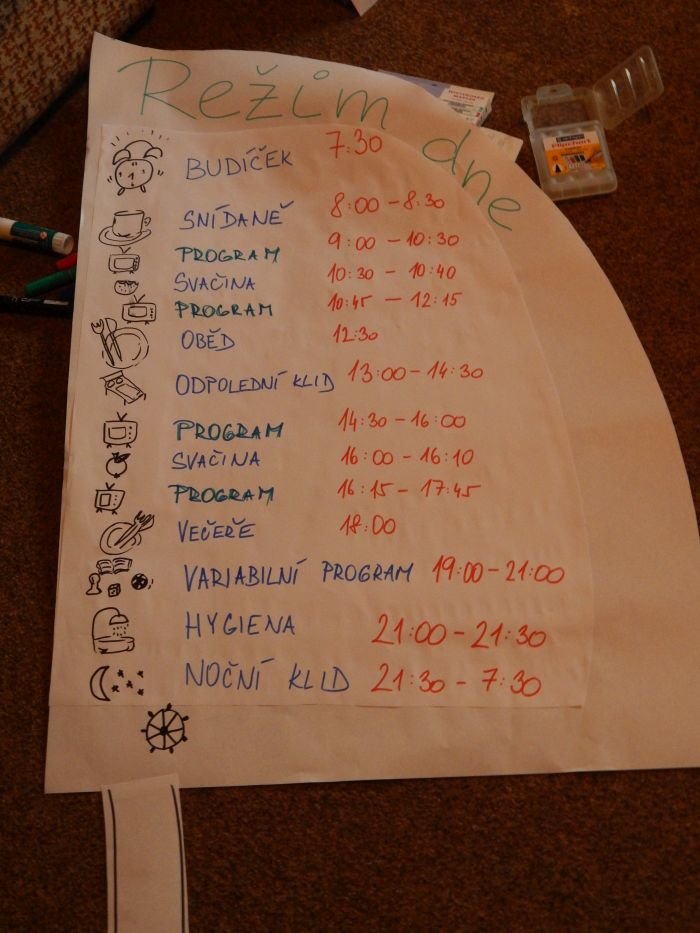 Režim dne
BUDÍČEK 7:30
SNÍDANĚ 8:00 - 8:30
PROGRAM 9:00 - 10:30
SVAČINA 10:30 - 10:40
PROGRAM 10:45 - 12:15
OBĚD 12:30
ODPOLEDNÍ KLID 13:00 - 14:30
PROGRAM 14:30 - 16:00
SVAČINA 16:00 - 16:10
PROGRAM 16:15 - 17:45
VEČEŘE 18:00
VARIABILNÍ PROGRAM 19:00 - 21:00
HYGIENA 21:00 - 21:30
NOČNÍ KLID 21:30 - 7:30
Flipchart